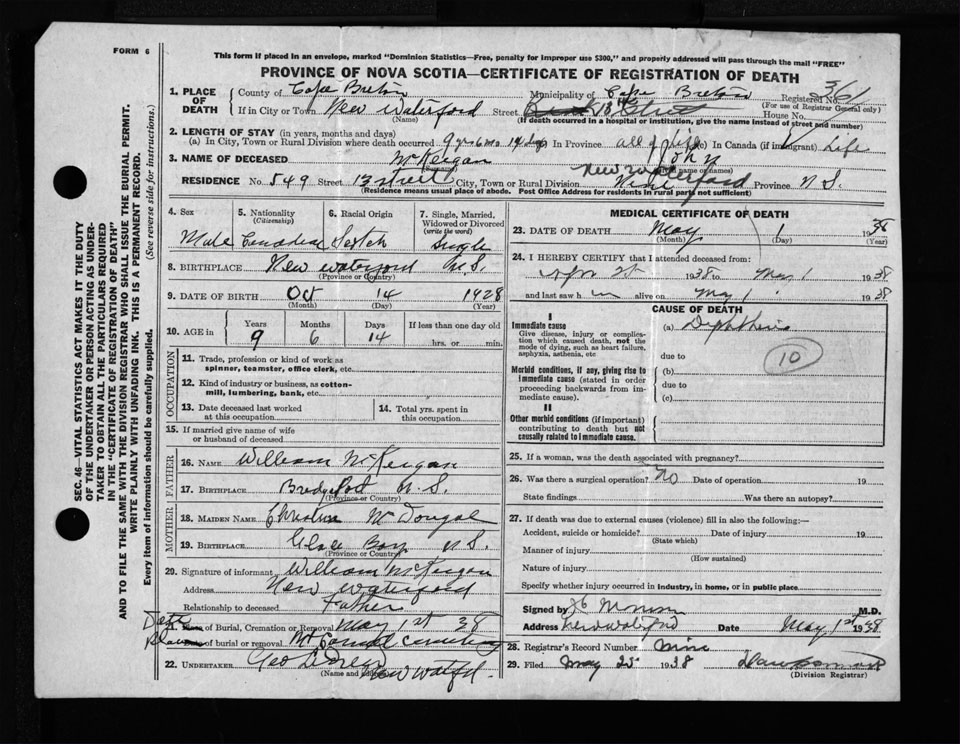 FORM 6
This form if placed in an envelope, marked "Dominion Statistics—Free, penalty for improper use $300," and properly addressed will pass through the mail "FREE"
PROVINCE OF NOVA SCOTIA—CERTIFICATE OF REGISTRATION OF DEATH
SEC. 46—VITAL STATISTICS ACT MAKES IT THE DUTY
OF THE UNDERTAKER OR PERSON ACTING AS UNDER-
TAKER TO OBTAIN ALL THE PARTICULARS REQUIRED
IN THE "CERTIFICATE OF REGISTRATION OF DEATH"
AND TO FILE THE SAME WITH THE DIVISION REGISTRAR WHO SHALL ISSUE THE BURIAL PERMIT.
WRITE PLAINLY WITH UNFADING INK. THIS IS A PERMANENT RECORD.
Every item of information should be carefully supplied. (See reverse side for instructions.)
1. PLACE OF DEATH County of Cape Breton Municipality of Cape Breton Registered No. 361
(For use of Registrar General only)
If in City or Town New Waterford Street 13th Street House No.
(Name) (If death occurred in a hospital or institution, give the name instead of street and number)
2. LENGTH OF STAY (in years, months and days)
(a) In City, Town or Rural Division where death occurred 9 yrs 6 mo 14 dys In Province all of life In Canada (if immigrant) Life
3. NAME OF DECEASED McKeigan John
RESIDENCE No. 549 Street 13 street City, Town or Rural Division New Waterford Province N S.
(Residence means usual place of abode. Post Office Address for residents in rural parts not sufficient)
4. Sex Male
5. Nationality (Citizenship) Canadian
6. Racial Origin Scotch
7. Single, Married, Widowed or Divorced (write the word) Single
8. BIRTHPLACE New Waterford N.S.
(Province or Country)
9. DATE OF BIRTH Oct 14 1928
(Month) (Day) (Year)
10. AGE in Years Months Days If less than one day old
9 6 14 hrs. or min.
OCCUPATION
11. Trade, profession or kind of work as
spinner, teamster, office clerk, etc.
12. Kind of industry or business, as cotton-
mill, lumbering, bank, etc.
13. Date deceased last worked at this occupation
14. Total yrs. spent in this occupation
15. If married give name of wife
or husband of deceased
FATHER
16. NAME William McKeigan
17. BIRTHPLACE Bridgeport N.S.
(Province or Country)
MOTHER
18. MAIDEN NAME Christina McDougal
19. BIRTHPLACE Glace Bay N S.
(Province or Country)
20. Signature of informant William McKeigan
Address New Waterford
Relationship to deceased Father
Date of Burial, Cremation or Removal May 1st 38
Place of burial or removal Mt Carmel Cemetery
22. UNDERTAKER Geo
(Name and Address) New Watfd.
MEDICAL CERTIFICATE OF DEATH
23. DATE OF DEATH May 1 1938
(Month) (Day) (Year)
24. I HEREBY CERTIFY that I attended deceased from:
1938 to May 1 1938
and last saw him alive on May 1 1938
CAUSE OF DEATH
I
Immediate cause
Give disease, injury or complica-
tion which caused death, not the
mode of dying, such as heart failure,
asphyxia, asthenia, etc
(a) Diphtheria
due to
10
Morbid conditions, if any, giving rise to
immediate cause (stated in order
proceeding backwards from im-
mediate cause).
(b)
due to
(c)
II
Other morbid conditions (if important)
contributing to death but not
causally related to immediate cause.
25. If a woman, was the death associated with pregnancy?
26. Was there a surgical operation? No Date of operation 19
State findings Was there an autopsy?
27. If death was due to external causes (violence) fill in also the following:—
Accident, suicide or homicide? Date of injury 19
(State which)
Manner of injury
(How sustained)
Nature of injury
Specify whether injury occurred in industry, in home, or in public place
Signed by M.D.
Address New Waterford Date May 1st 1938
28. Registrar's Record Number nine
29. Filed May 25 1938
(Division Registrar)